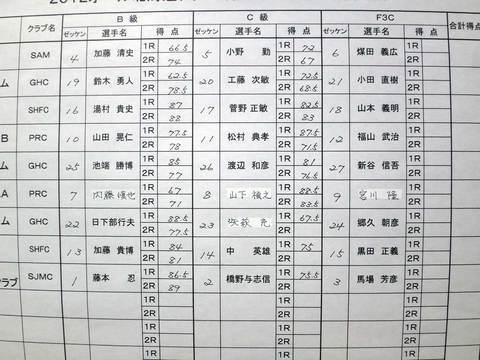 B 級 C 級 F3C
クラブ名 ゼッケン 選手名 得 点 ゼッケン 選手名 得 点 ゼッケン 選手名 得 点 合計得点
SAM 4 加藤 清史 1R 66.5 5 小野 勤 1R 72 6 煤田 義広 1R
2R 74 2R 67 2R
ム GHC 19 鈴木 勇人 1R 62.5 20 工藤 次敏 1R 72.5 21 小田 直樹 1R
2R 78.5 2R 68.5 2R
SHFC 16 湯村 貴史 1R 87 17 菅野 正敏 1R 82.5 18 山本 義明 1R
2R 88 2R 83 2R
B PRC 10 山田 晃仁 1R 77.5 11 松村 典孝 1R 87.5 12 福山 武治 1R
2R 78 2R 71.5 2R
ム GHC 25 池端 勝博 1R 85 26 渡辺 和彦 1R 81 27 新谷 信吾 1R
2R 77 2R 76.5 2R
A PRC 7 内藤 1R 67 8 山下 1R 88.5 9 宮川 隆 1R
2R 71 2R 83.5 2R
ム GHC 22 日下部行夫 1R 88.5 23 1R 67.5 24 郷久 朝彦 1R
2R 77.5 2R 2R
SHFC 13 加藤 貴博 1R 84 14 中 英雄 1R 75 15 黒田 正義 1R
2R 81 2R 2R
クラブ SJMC 1 藤本 忍 1R 86.5 2 橋野与志信 1R 75.5 3 馬場 芳彦 1R
2R 89 2R 2R
1R 1R 1R
2R 2R 2R
1R 1R 1R
2R 2R 2R